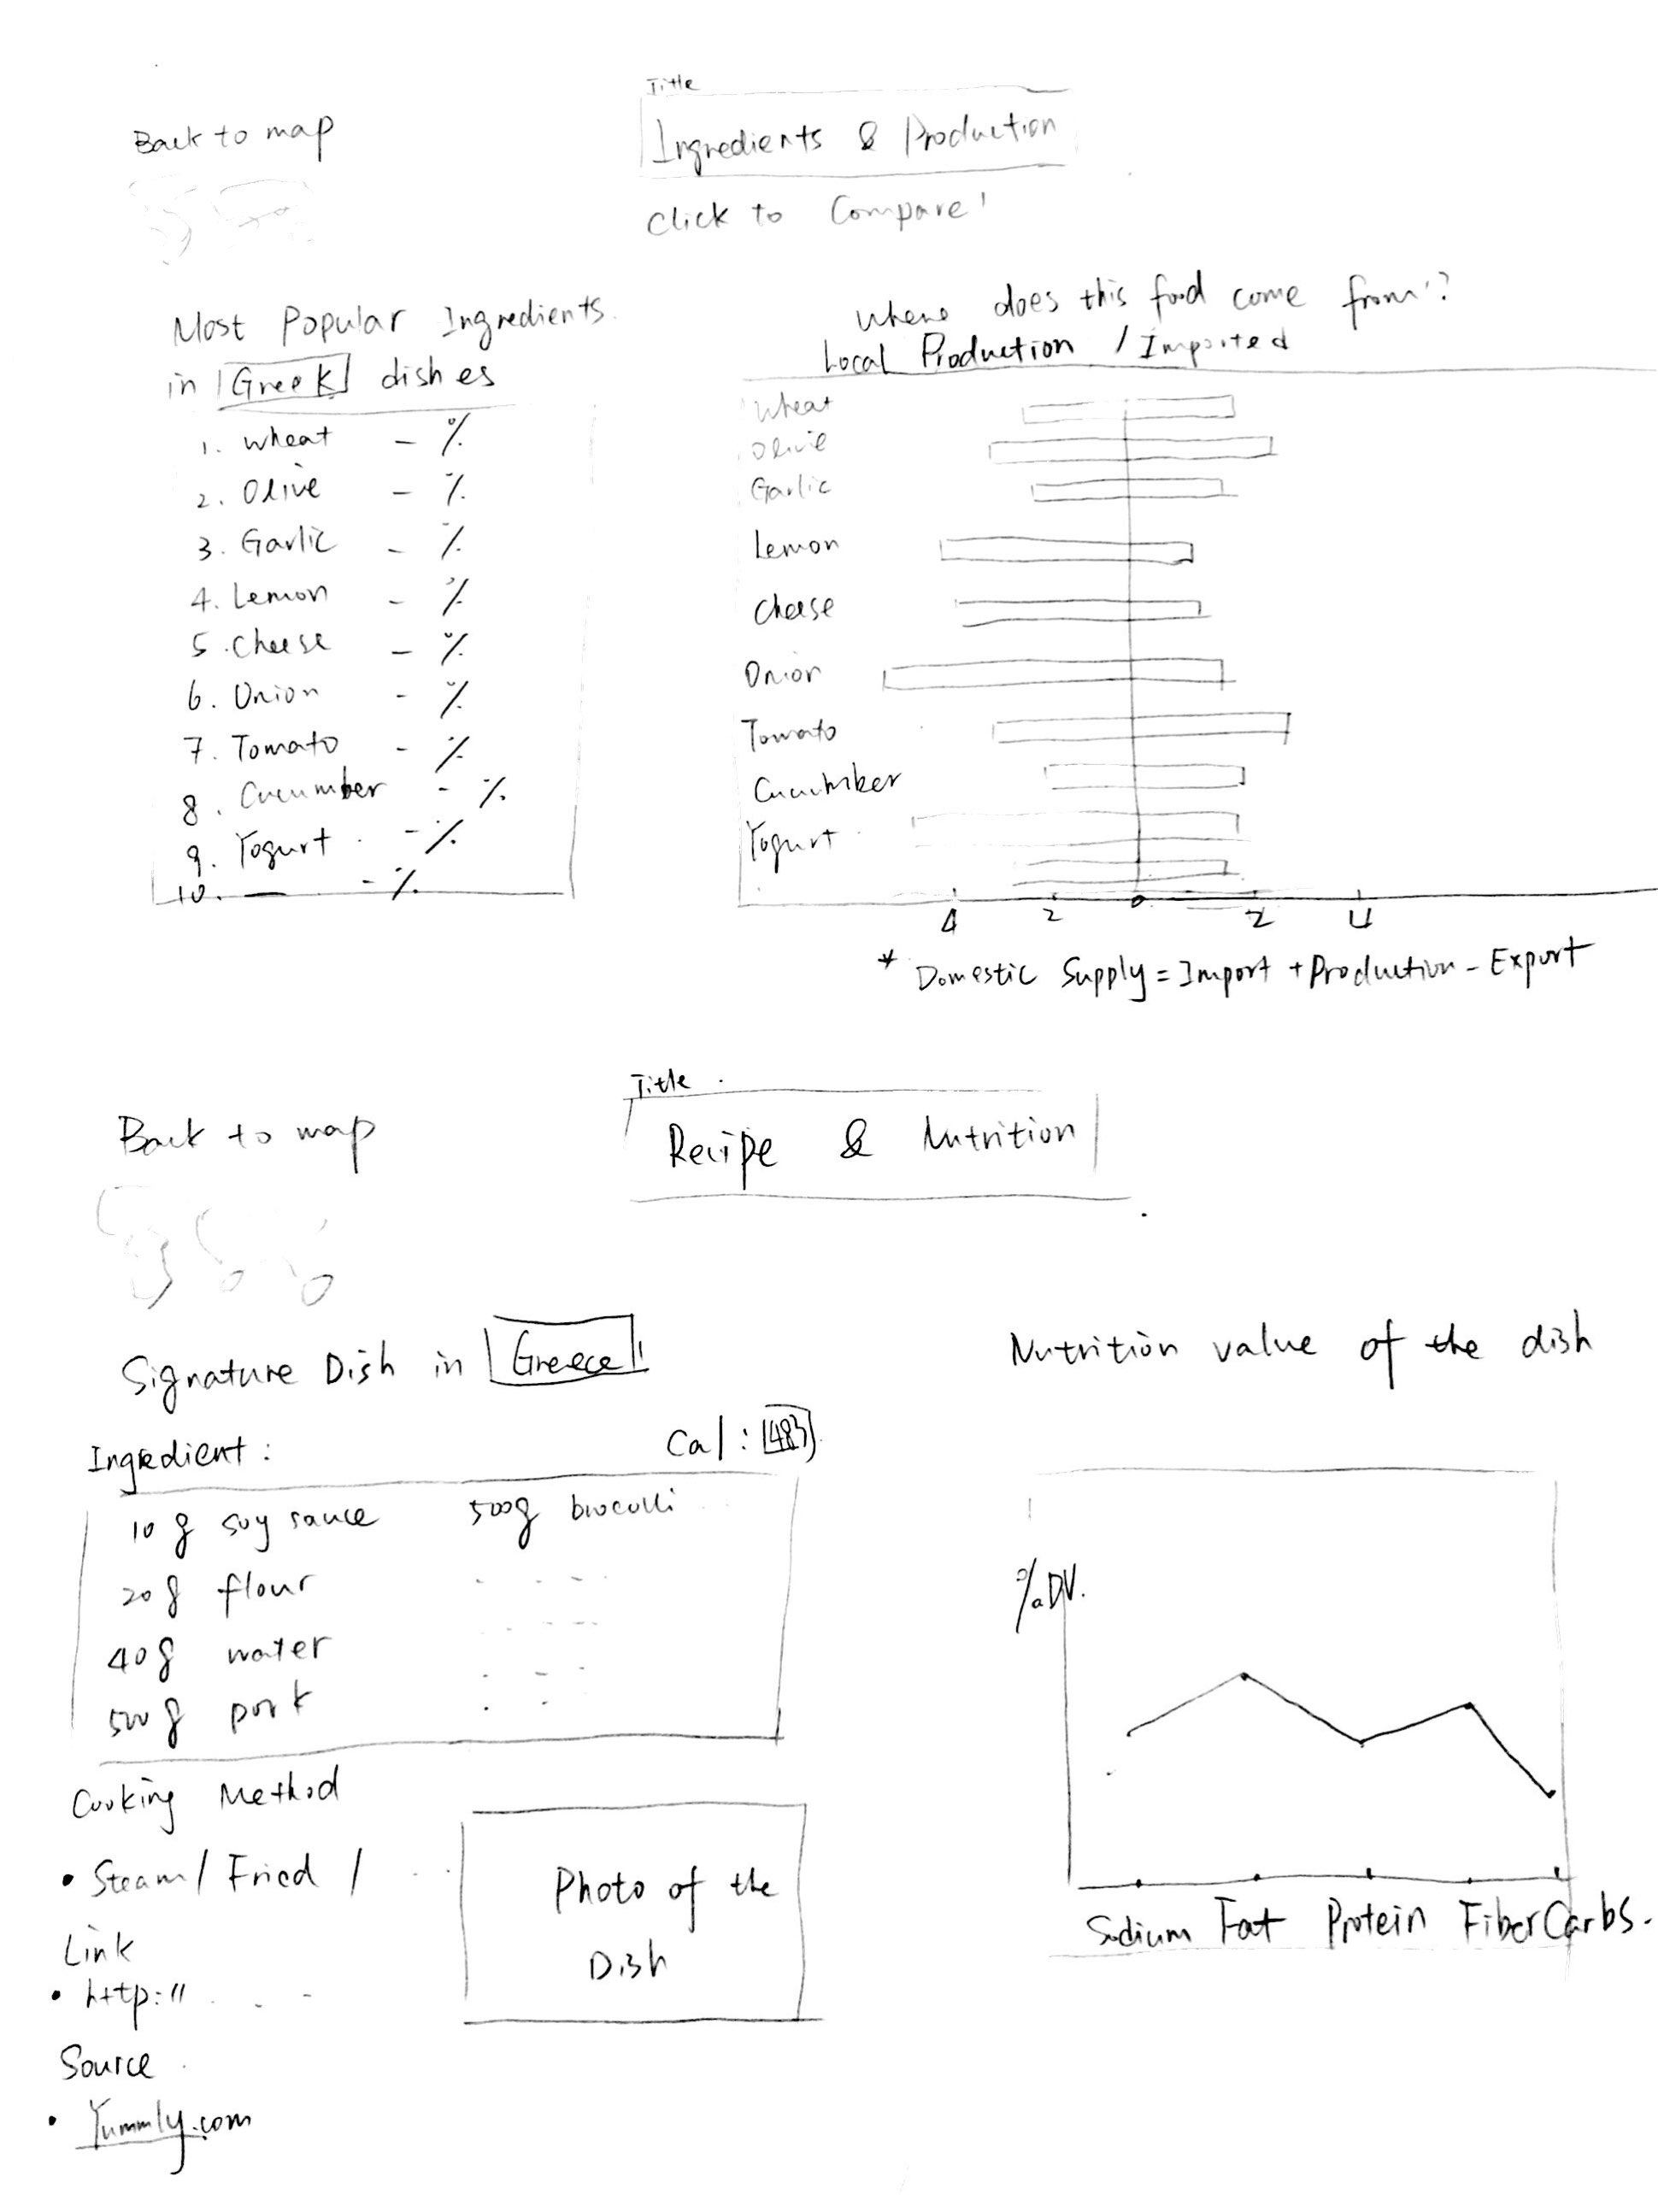 Title
Back to map
Ingredients & Production
Click to Compare!
Most Popular Ingredients
in Greek dishes
1. wheat - %
2. Olive - %
3. Garlic - %
4. Lemon - %
5. Cheese - %
6. Onion - %
7. Tomato - %
8. Cucumber - %
9. Yogurt - %
10. — - %
Where does this food come from?
Local Production / Imported
Wheat
Olive
Garlic
Lemon
Cheese
Onion
Tomato
Cucumber
Yogurt
4 2 0 2 4
* Domestic Supply = Import + Production - Export
Title
Back to map
Recipe & Nutrition
Signature Dish in Greece
Ingredient:
Cal: 483
10 g soy sauce 500g broculli
20 g flour
40 g water
500 g pork
Cooking Method
• Steam / Fried /
Link
• http://
Source
• Yummly.com
Photo of the
Dish
Nutrition value of the dish
%DV.
Sodium Fat Protein Fiber Carbs.